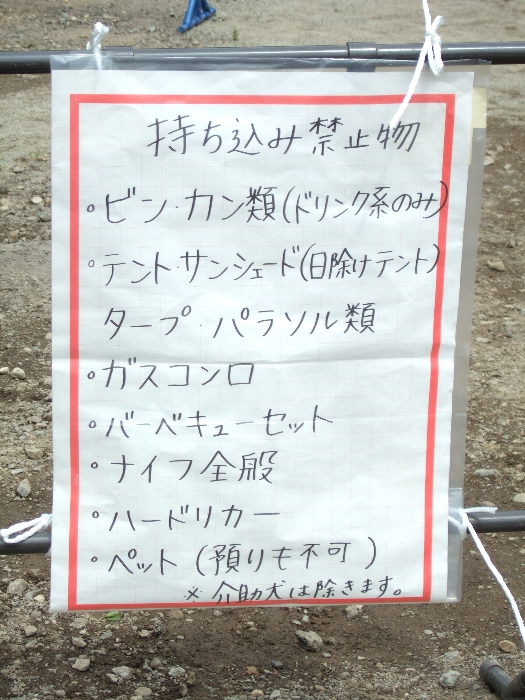 持ち込み禁止物
。ビン・カン類(ドリンク系のみ)
。テント・サンシェード(日除けテント)
タープ・パラソル類
。ガスコンロ
。バーベキューセット
。ナイフ全般
。ハードリカー
。ペット (預りも不可)
※介助犬は除きます。